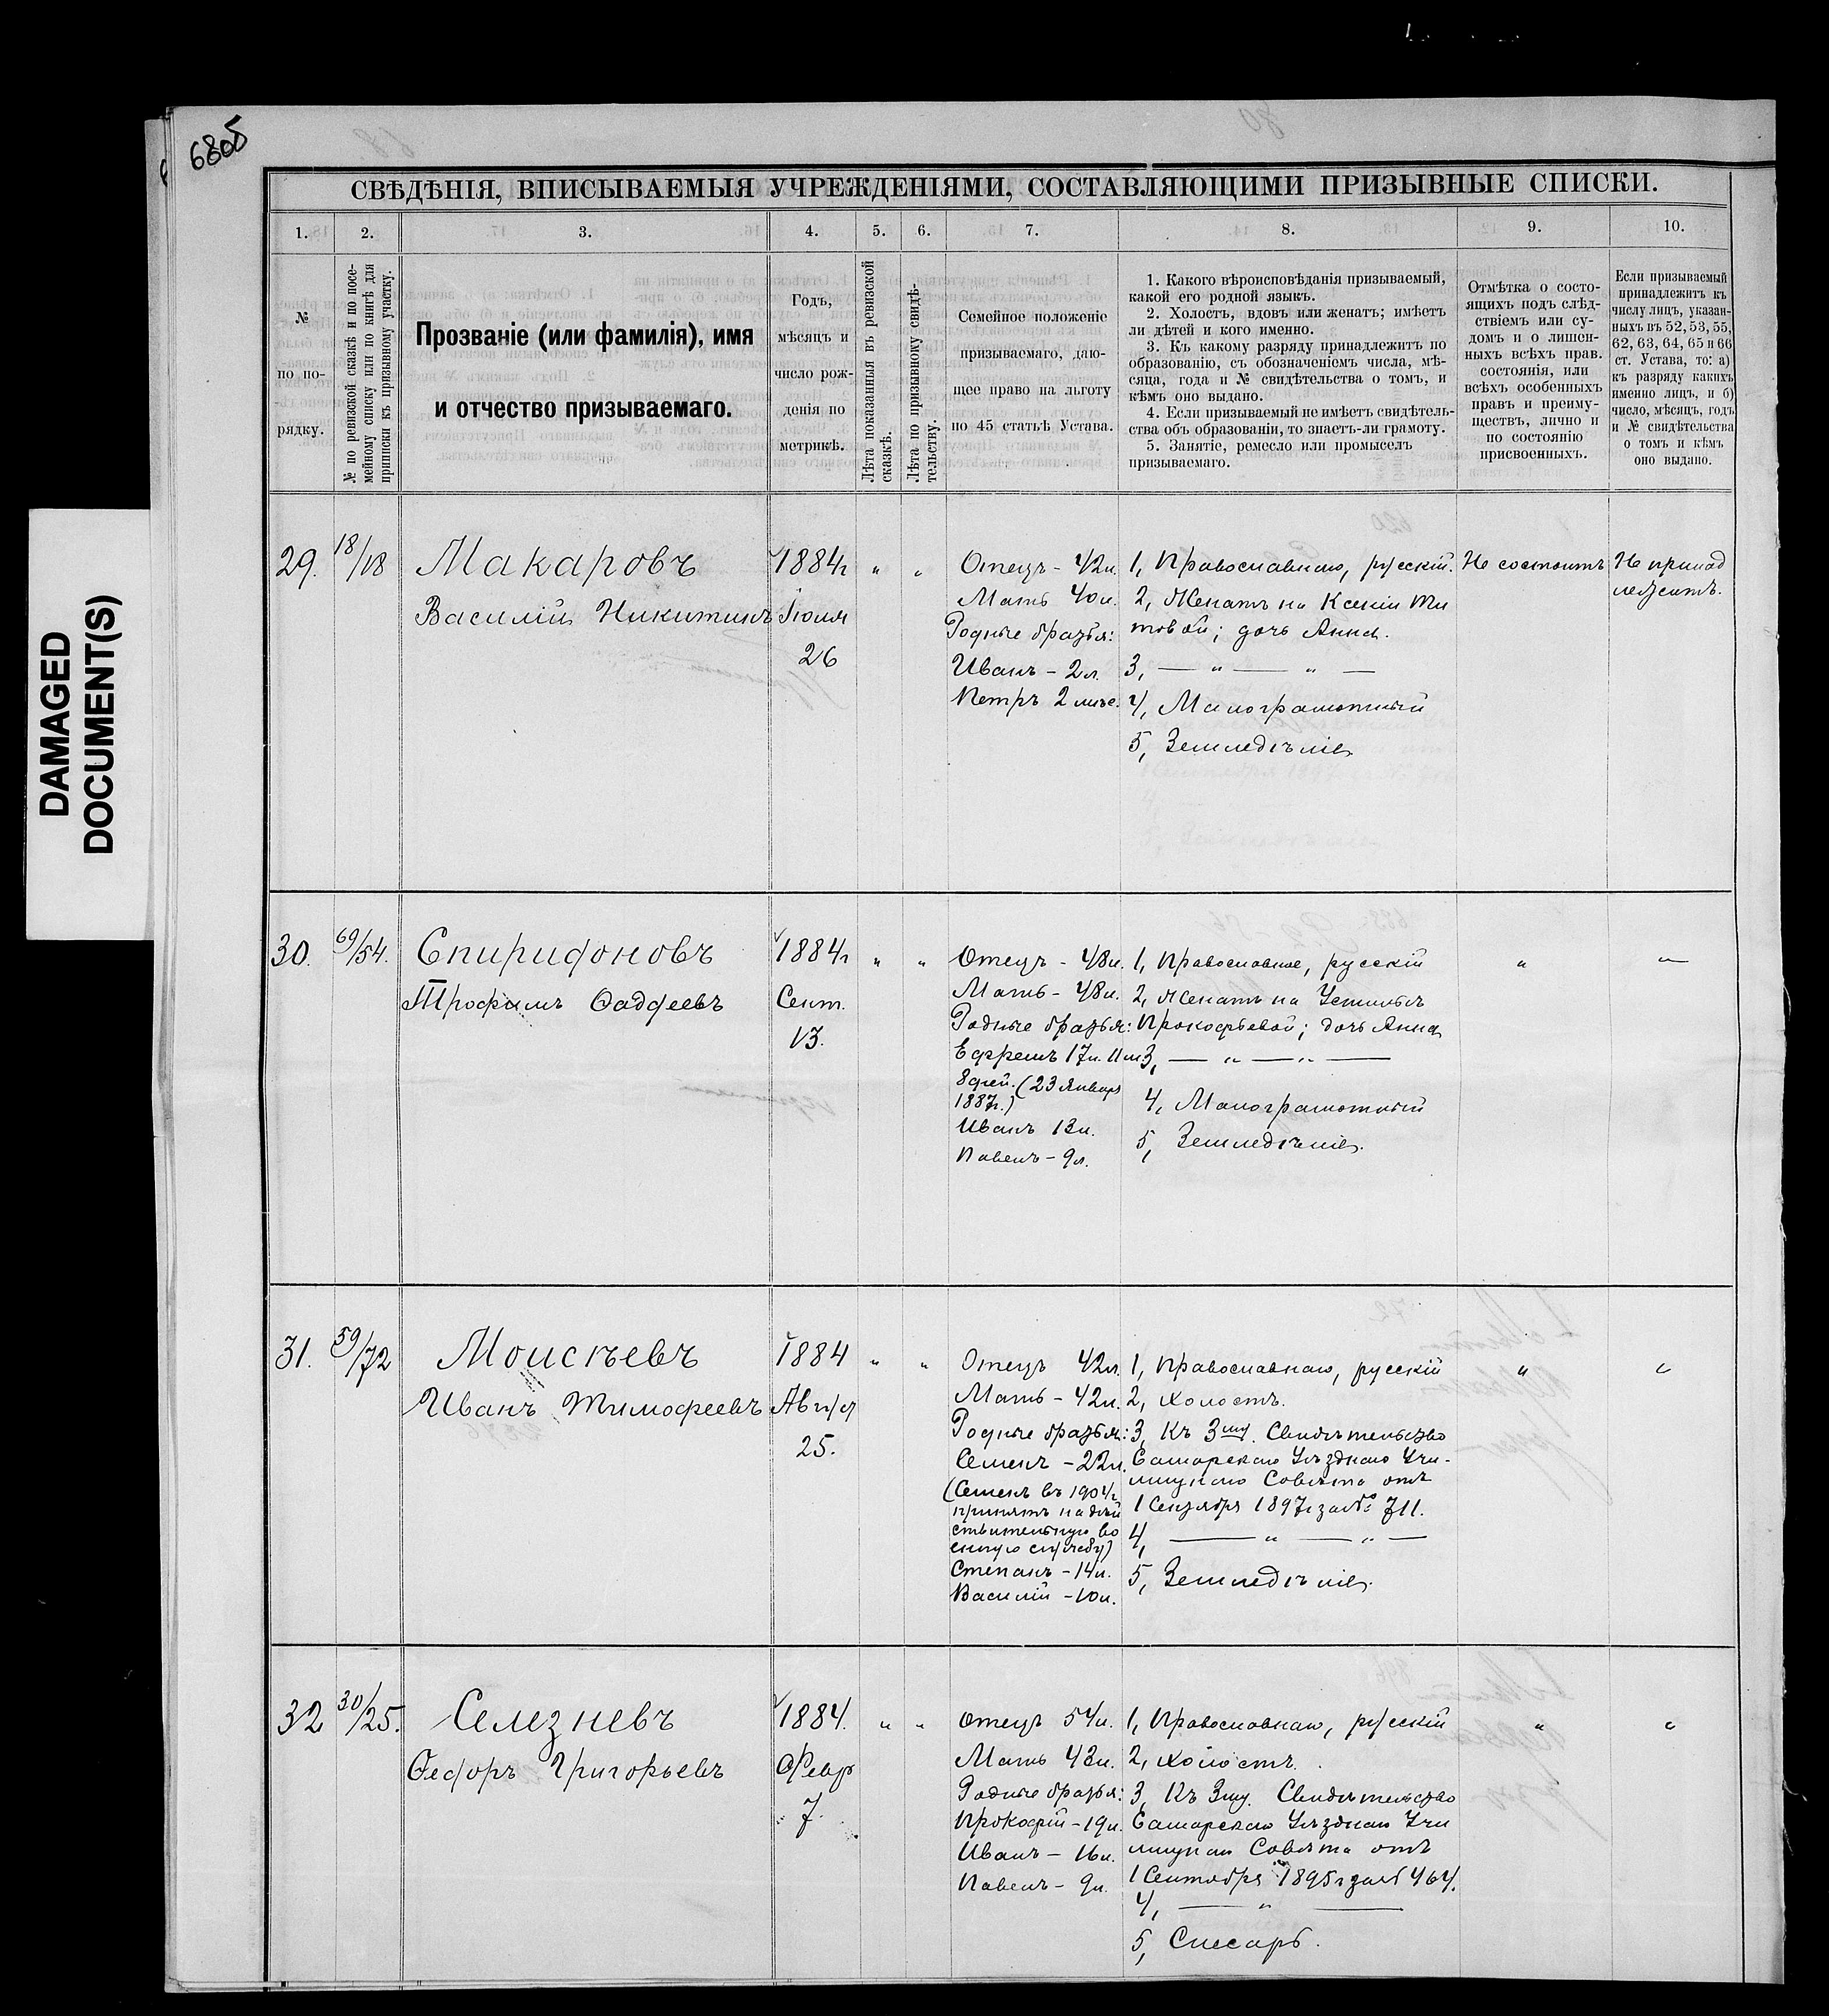 680б
DAMAGED
DOCUMENT(S)
СВѢДѢНІЯ, ВПИСЫВАЕМЫЯ УЧРЕЖДЕНІЯМИ, СОСТАВЛЯЮЩИМИ ПРИЗЫВНЫЕ СПИСКИ.
1. 2. 3. 4. 5. 6. 7. 8. 9. 10.
№
по по-
рядку.
№ по ревизской сказкѣ и по посе-
мейному списку или по книгѣ для
приписки къ призывному участку.
Прозваніе (или фамилія), имя
и отчество призываемаго.
Годъ,
мѣсяцъ и
число рож-
денія по
метрикѣ.
Лѣта показанныя въ ревизской
сказкѣ.
Лѣта по призывному свидѣ-
тельству.
Семейное положеніе
призываемаго, даю-
щее право на льготу
по 45 статьѣ Устава.
1. Какого вѣроисповѣданія призываемый,
какой его родной языкъ.
2. Холостъ, вдовъ или женатъ; имѣетъ
ли дѣтей и кого именно.
3. Къ какому разряду принадлежитъ по
образованію, съ обозначеніемъ числа, мѣ-
сяца, года и № свидѣтельства о томъ, и
кѣмъ оно выдано.
4. Если призываемый не имѣетъ свидѣтель-
ства объ образованіи, то знаетъ-ли грамоту.
5. Занятіе, ремесло или промыселъ
призываемаго.
Отмѣтка о состо-
ящихъ подъ слѣд-
ствіемъ или су-
домъ и о лишен-
ныхъ всѣхъ прав.
состоянія, или
всѣхъ особенныхъ
правъ и преиму-
ществъ, лично и
по состоянію
присвоенныхъ.
Если призываемый
принадлежитъ къ
числу лицъ, указан-
ныхъ въ 52, 53, 55,
62, 63, 64, 65 и 66
ст. Устава, то: а)
къ разряду какихъ
именно лицъ, и б)
число, мѣсяцъ, годъ
и № свидѣтельства
о томъ и кѣмъ
оно выдано.
29. 18/18
Макаровъ
Василій Никитинъ
1884г
Іюля
26
" "
Отецъ - 42л.
Мать 40л.
Родные братья:
Иванъ - 2л.
Петръ 2 мѣс.
1, Православнаго, русскій.
2, Женатъ на Ксеніи Ти
товой; дочь Анна.
3, — " — " —
4, Малограмотный
5, Земледѣліе
Не состоитъ
Не принад
лежитъ.
30. 69/54.
Спиридоновъ
Трофимъ Фаддеевъ
1884г
Сент.
13.
" "
Отецъ - 48л.
Мать - 48л.
Родные братья:
Ефремъ 17л. 11м.
8 дней. (23 Января
1887г.)
Иванъ 13л.
Павелъ - 9л.
1, Православное, русскій
2, Женатъ на Устиньѣ
Прокофьевой; дочь Анна
3, — " — " —
4, Малограмотный
5, Земледѣліе.
" "
31. 59/72
Моисѣевъ
Иванъ Тимофеевъ
1884
Авгус
25.
" "
Отецъ 42л.
Мать - 42л.
Родные братья:
Семенъ - 22л.
(Семенъ въ 1904г
принятъ на дѣй
ствительную во
енную службу)
Степанъ - 14л.
Василій - 10л.
1, Православнаго, русскій
2, Холостъ.
3, Къ 3му. Свидѣтельство
Самарскаго Уѣзднаго Учи-
лищнаго Совѣта отъ
1 Сентября 1897г за № 711.
4, — " — " —
5, Земледѣліе.
" "
32 30/25.
Селезневъ
Федоръ Григорьевъ
1884.
Февр
7.
" "
Отецъ 54л.
Мать 43л.
Родные братья:
Прокофій - 19л.
Иванъ - 16л.
Павелъ - 9л.
1, Православнаго, русскій
2, Холостъ.
3, Къ 3му. Свидѣтельство
Самарскаго Уѣзднаго Учи
лищнаго Совѣта отъ
1 Сентября 1895г за № 464.
4, — " —
5, Слесарь.
" "